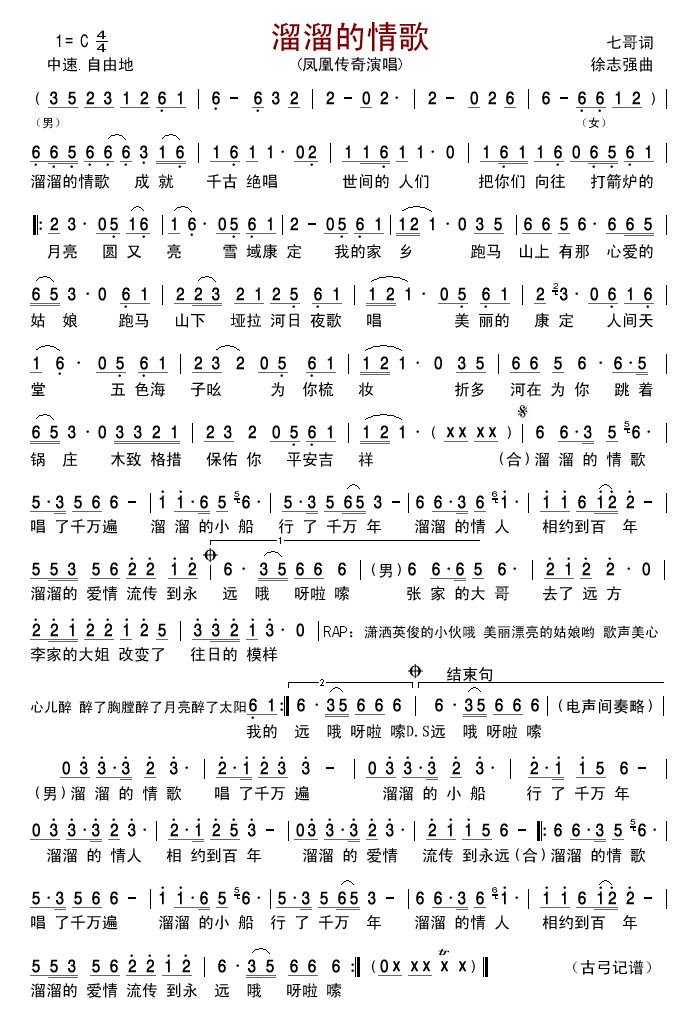 溜溜的情歌
1= C 4/4 七哥词
中速.自由地 (凤凰传奇演唱) 徐志强曲
( 3 5 2 3 1 2 6 1 | 6 - 6 3 2 | 2 - 0 2 · | 2 - 0 2 6 | 6 - 6 6 1 2 ) |
(男) (女)
6 6 5 6 6 6 3 1 6 | 1 6 1 1 · 0 2 | 1 1 6 1 1 1 · 0 | 1 6 1 1 6 0 6 5 6 1 |
溜溜的情歌 成 就 千古 绝唱 世间的 人们 把你们 向往 打箭炉的
‖: 2 3 · 0 5 1 6 | 1 6 · 0 5 6 1 | 2 - 0 5 6 1 | 1 2 1 · 0 3 5 | 6 6 5 6 · 6 6 5 |
月亮 圆 又 亮 雪 域康 定 我的家 乡 跑马 山上 有那 心爱的
6 5 3 · 0 6 1 | 2 2 3 2 1 2 5 6 1 | 1 2 1 · 0 5 6 1 | 2 2 3 · 0 6 1 6 |
姑 娘 跑马 山下 垭拉 河日 夜歌 唱 美 丽的 康 定 人间天
1 6 · 0 5 6 1 | 2 3 2 0 5 6 1 | 1 2 1 · 0 3 5 | 6 6 5 6 · 6 · 5 |
堂 五 色海 子吆 为 你梳 妆 折多 河在 为 你 跳 着
6 5 3 · 0 3 3 2 1 | 2 3 2 0 5 6 1 | 1 2 1 · ( x x x x ) | 6 6 · 3 5 5 6 · |
锅 庄 木致 格措 保佑 你 平安吉 祥 (合)溜 溜 的 情 歌
5 · 3 5 6 6 - | 1 1 · 6 5 5 6 · | 5 · 3 5 6 5 3 - | 6 6 · 3 6 6 1 · | 1 1 6 1 2 2 - |
唱 了千万遍 溜 溜 的小 船 行 了 千万 年 溜溜 的情 人 相约到百 年
1
5 5 3 5 6 2 2 1 2 | 6 · 3 5 6 6 6 | (男) 6 6 · 6 5 6 · | 2 1 2 2 · 0 |
溜溜的 爱情 流传 到永 远 哦 呀啦 嗦 张 家 的大 哥 去了 远 方
2 2 1 2 2 2 2 1 3 · 0 | RAP：潇洒英俊的小伙哦 美丽漂亮的姑娘哟 歌声美心
李家的大姐 改变了 往日的 模样
2 结束句
心儿醉 醉了胸膛醉了月亮醉了太阳 6 1 :‖ 6 · 3 5 6 6 6 | 6 · 3 5 6 6 6 | (电声间奏略) |
我的 远 哦 呀啦 嗦D.S远 哦 呀啦 嗦
0 3 3 · 3 2 3 · | 2 · 1 2 3 3 - | 0 3 3 · 3 2 3 · | 2 · 1 1 5 6 - |
(男)溜 溜 的 情 歌 唱 了千万 遍 溜溜 的 小 船 行 了 千万 年
0 3 3 · 3 2 3 · | 2 · 1 2 5 3 - | 0 3 3 · 3 2 3 · | 2 1 1 5 6 - ‖: 6 6 · 3 5 5 6 · |
溜溜 的 情人 相 约到百 年 溜溜 的 爱情 流传 到永远(合)溜溜 的情 歌
5 · 3 5 6 6 - | 1 1 · 6 5 5 6 · | 5 · 3 5 6 5 3 - | 6 6 · 3 6 6 1 · | 1 1 6 1 2 2 - |
唱 了千万遍 溜溜 的小 船 行 了 千万 年 溜溜 的情 人 相约到百 年
5 5 3 5 6 2 2 1 2 | 6 · 3 5 6 6 6 :‖ ( 0 x x x x x ) ‖ (古弓记谱)
溜溜的 爱情 流传 到永 远 哦 呀啦 嗦